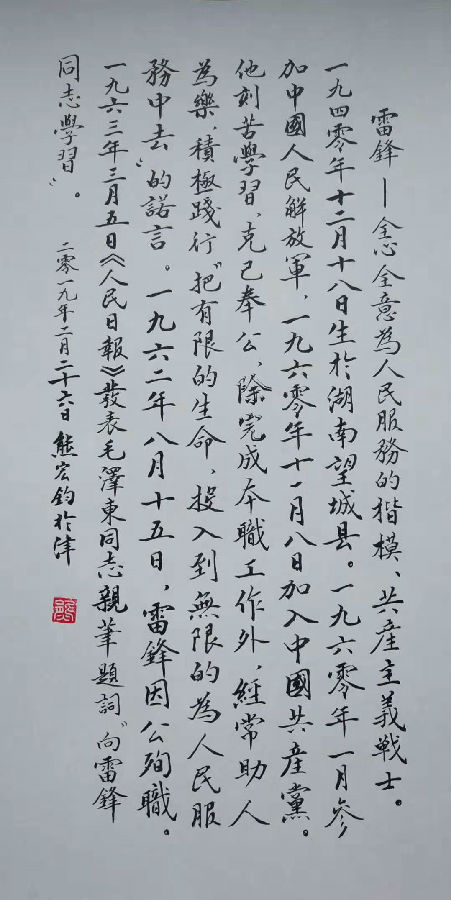 雷鋒—全心全意為人民服務的楷模、共產主義戰士。
一九四零年十二月十八日生於湖南望城县。一九六零年一月參
加中國人民解放軍，一九六零年十一月八日加入中國共產黨。
他刻苦學習、克己奉公，除完成本職工作外，經常助人
為樂，積極踐行“把有限的生命，投入到無限的為人民服
務中去”的諾言。一九六二年八月十五日，雷鋒因公殉職。
一九六三年三月五日《人民日報》發表毛澤東同志親筆題詞“向雷鋒
同志學習”。
二零一九年二月二十六日熊宏鈞於津